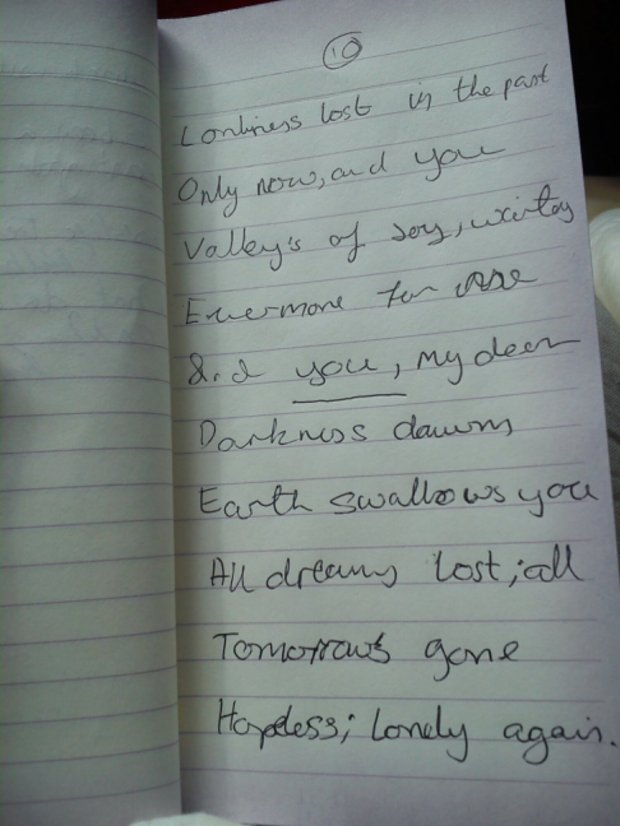 10
Lonliness lost in the past
Only now, and you
Valley's of joy, waiting
Evermore for
& I you, my dear
Darkness dawns
Earth swallows you
All dreams lost; all
Tomorrow's gone
Hopeless; lonely again.